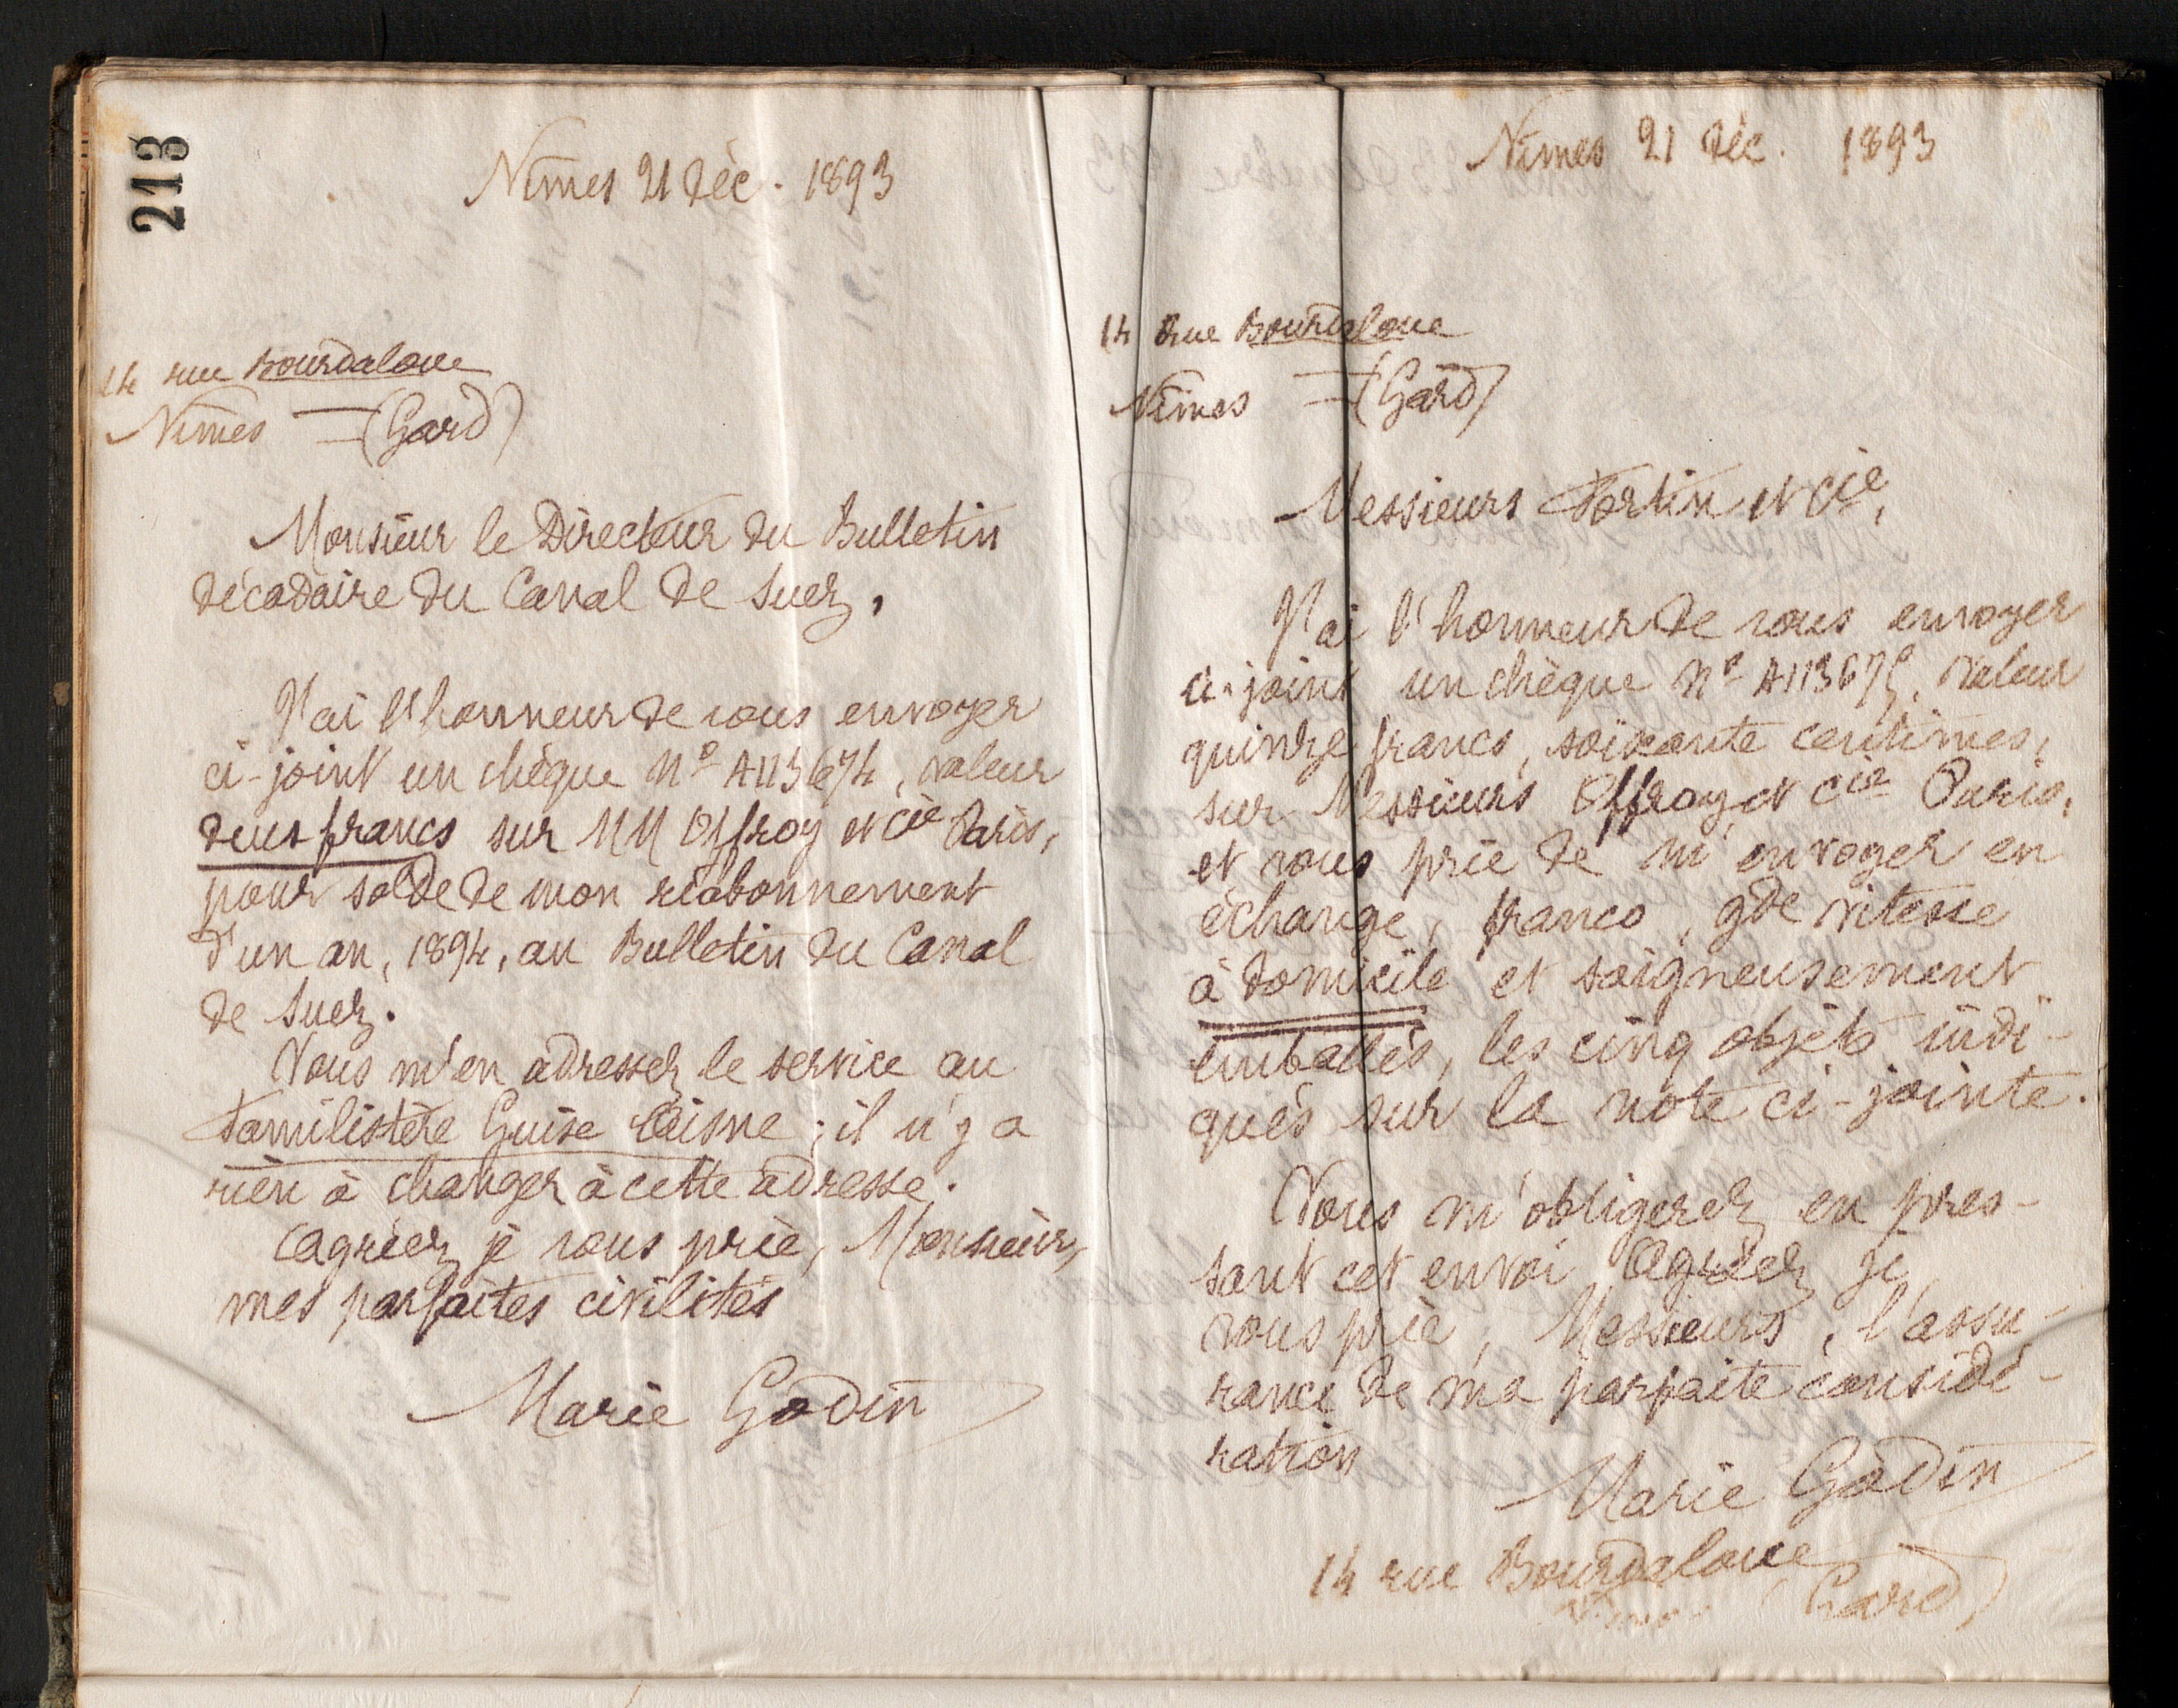 213
Nîmes 21 Déc. 1893
14 rue Bourdaloue
Nîmes = (Gard)
Monsieur le Directeur du Bulletin
décadaire du Canal de Suez,
J'ai l'honneur de vous envoyer
ci-joint un chèque No A113674, valeur
deux francs sur MM Offroy et Cie Paris,
pour solde de mon réabonnement
d'un an, 1894, au Bulletin du Canal
de Suez.
Vous m'en adressez le service au
Familistère Guise Aisne ; il n'y a
rien à changer à cette adresse.
Agréez je vous prie, Monsieur,
mes parfaites civilités
Marie Godin
Nîmes 21 Déc. 1893
14 Rue Bourdaloue
Nîmes = (Gard)
Messieurs Fortin et Cie,
J'ai l'honneur de vous envoyer
ci-joint un chèque No A113675, valeur
quinze francs, soixante centimes,
sur Messieurs Offroy et Cie Paris,
et vous prie de m'envoyer en
échange, franco, gde vitesse
à domicile et soigneusement
emballés, les cinq objets indi-
qués sur la note ci-jointe.
Vous m'obligerez en pres-
sant cet envoi Agréez je
vous prie, Messieurs, l'assu-
rance de ma parfaite considé-
ration
Marie Godin
14 rue Bourdaloue
Nîmes (Gard)